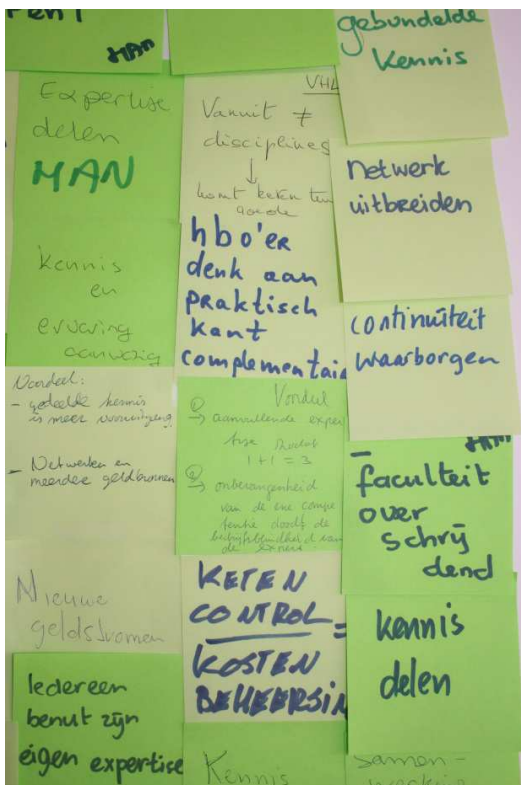 HAN
Expertise
delen
HAN
kennis
en
ervaring
aanwezig
Voordeel:
- gedeelde kennis
is meer vooruitgang
- Netwerken en
meerdere geldbronnen
Nieuwe
geldstromen
Iedereen
benut zijn
eigen expertise
VHL
Vanuit ≠
disciplines
↓
komt keten ten
goede
hbo'er
denk aan
praktisch
kant
complementair
Voordeel
① → aanvullende exper
tise
1 + 1 = 3
② → onbevangenheid
van de ene compe
tentie doorbr. de
bedrijfsblindheid van
de expert
KETEN
CONTROL =
KOSTEN
BEHEERSIN
Kennis
gebundelde
kennis
Netwerk
uitbreiden
continuïteit
waarborgen
HAN
faculteit
over
schrij
dend
kennis
delen
samen-
werking